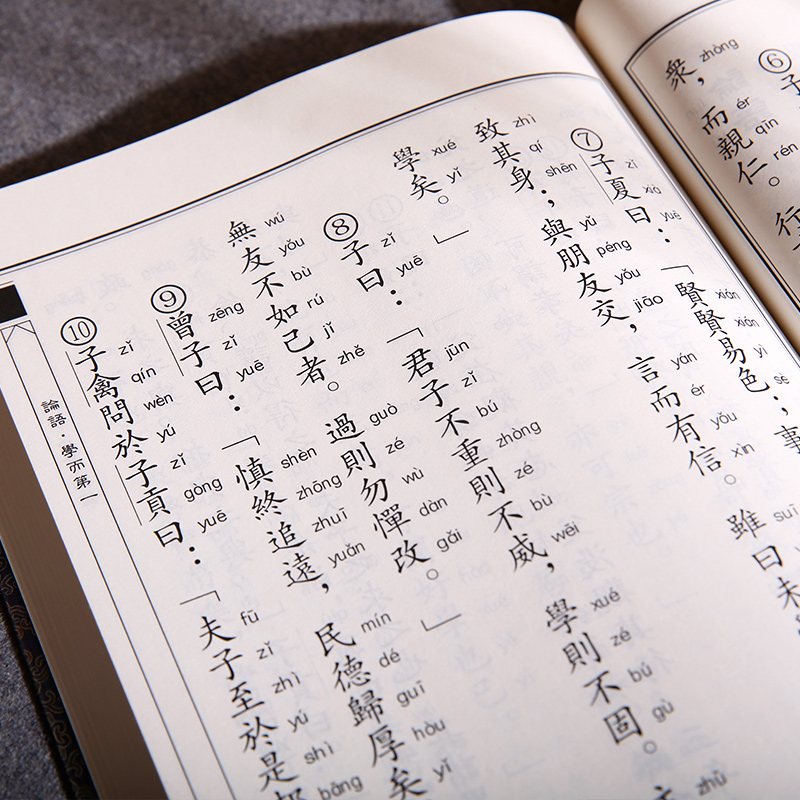 ⑥子
眾，而親仁。行
zhòng ér qīn rén
⑦子夏曰：「賢賢易色；事
zǐ xià yuē xián xián yì sè
致其身；與朋友交，言而有信。雖曰未
zhì qí shēn yǔ péng yǒu jiāo yán ér yǒu xìn suī
學矣。」
xué yǐ
⑧子曰：「君子不重則不威，學則不固。
zǐ yuē jūn zǐ bú zhòng zé bù wēi xué zé bú gù zhǔ
無友不如己者。過則勿憚改。」
wú yǒu bù rú jǐ zhě guò zé wù dàn gǎi
⑨曾子曰：「慎終追遠，民德歸厚矣
zēng zǐ yuē shèn zhōng zhuī yuǎn mín dé guī hòu yǐ
⑩子禽問於子貢曰：「夫子至於是
zǐ qín wèn yú zǐ gòng yuē fū zǐ zhì yú shì bāng
論語．學而第一